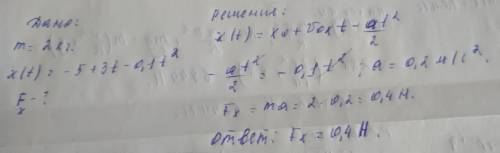 Дано:
m = 2кг.
x(t) = -5+3t-0,1t²
Fₓ - ?
Решение:
x(t) = x₀ + v₀ₓ t - at²/2
- at²/2 = - 0,1t² ; a = 0,2 м/с².
Fₓ = ma = 2·0,2 = 0,4 Н.
Ответ: Fₓ = 0,4 Н.